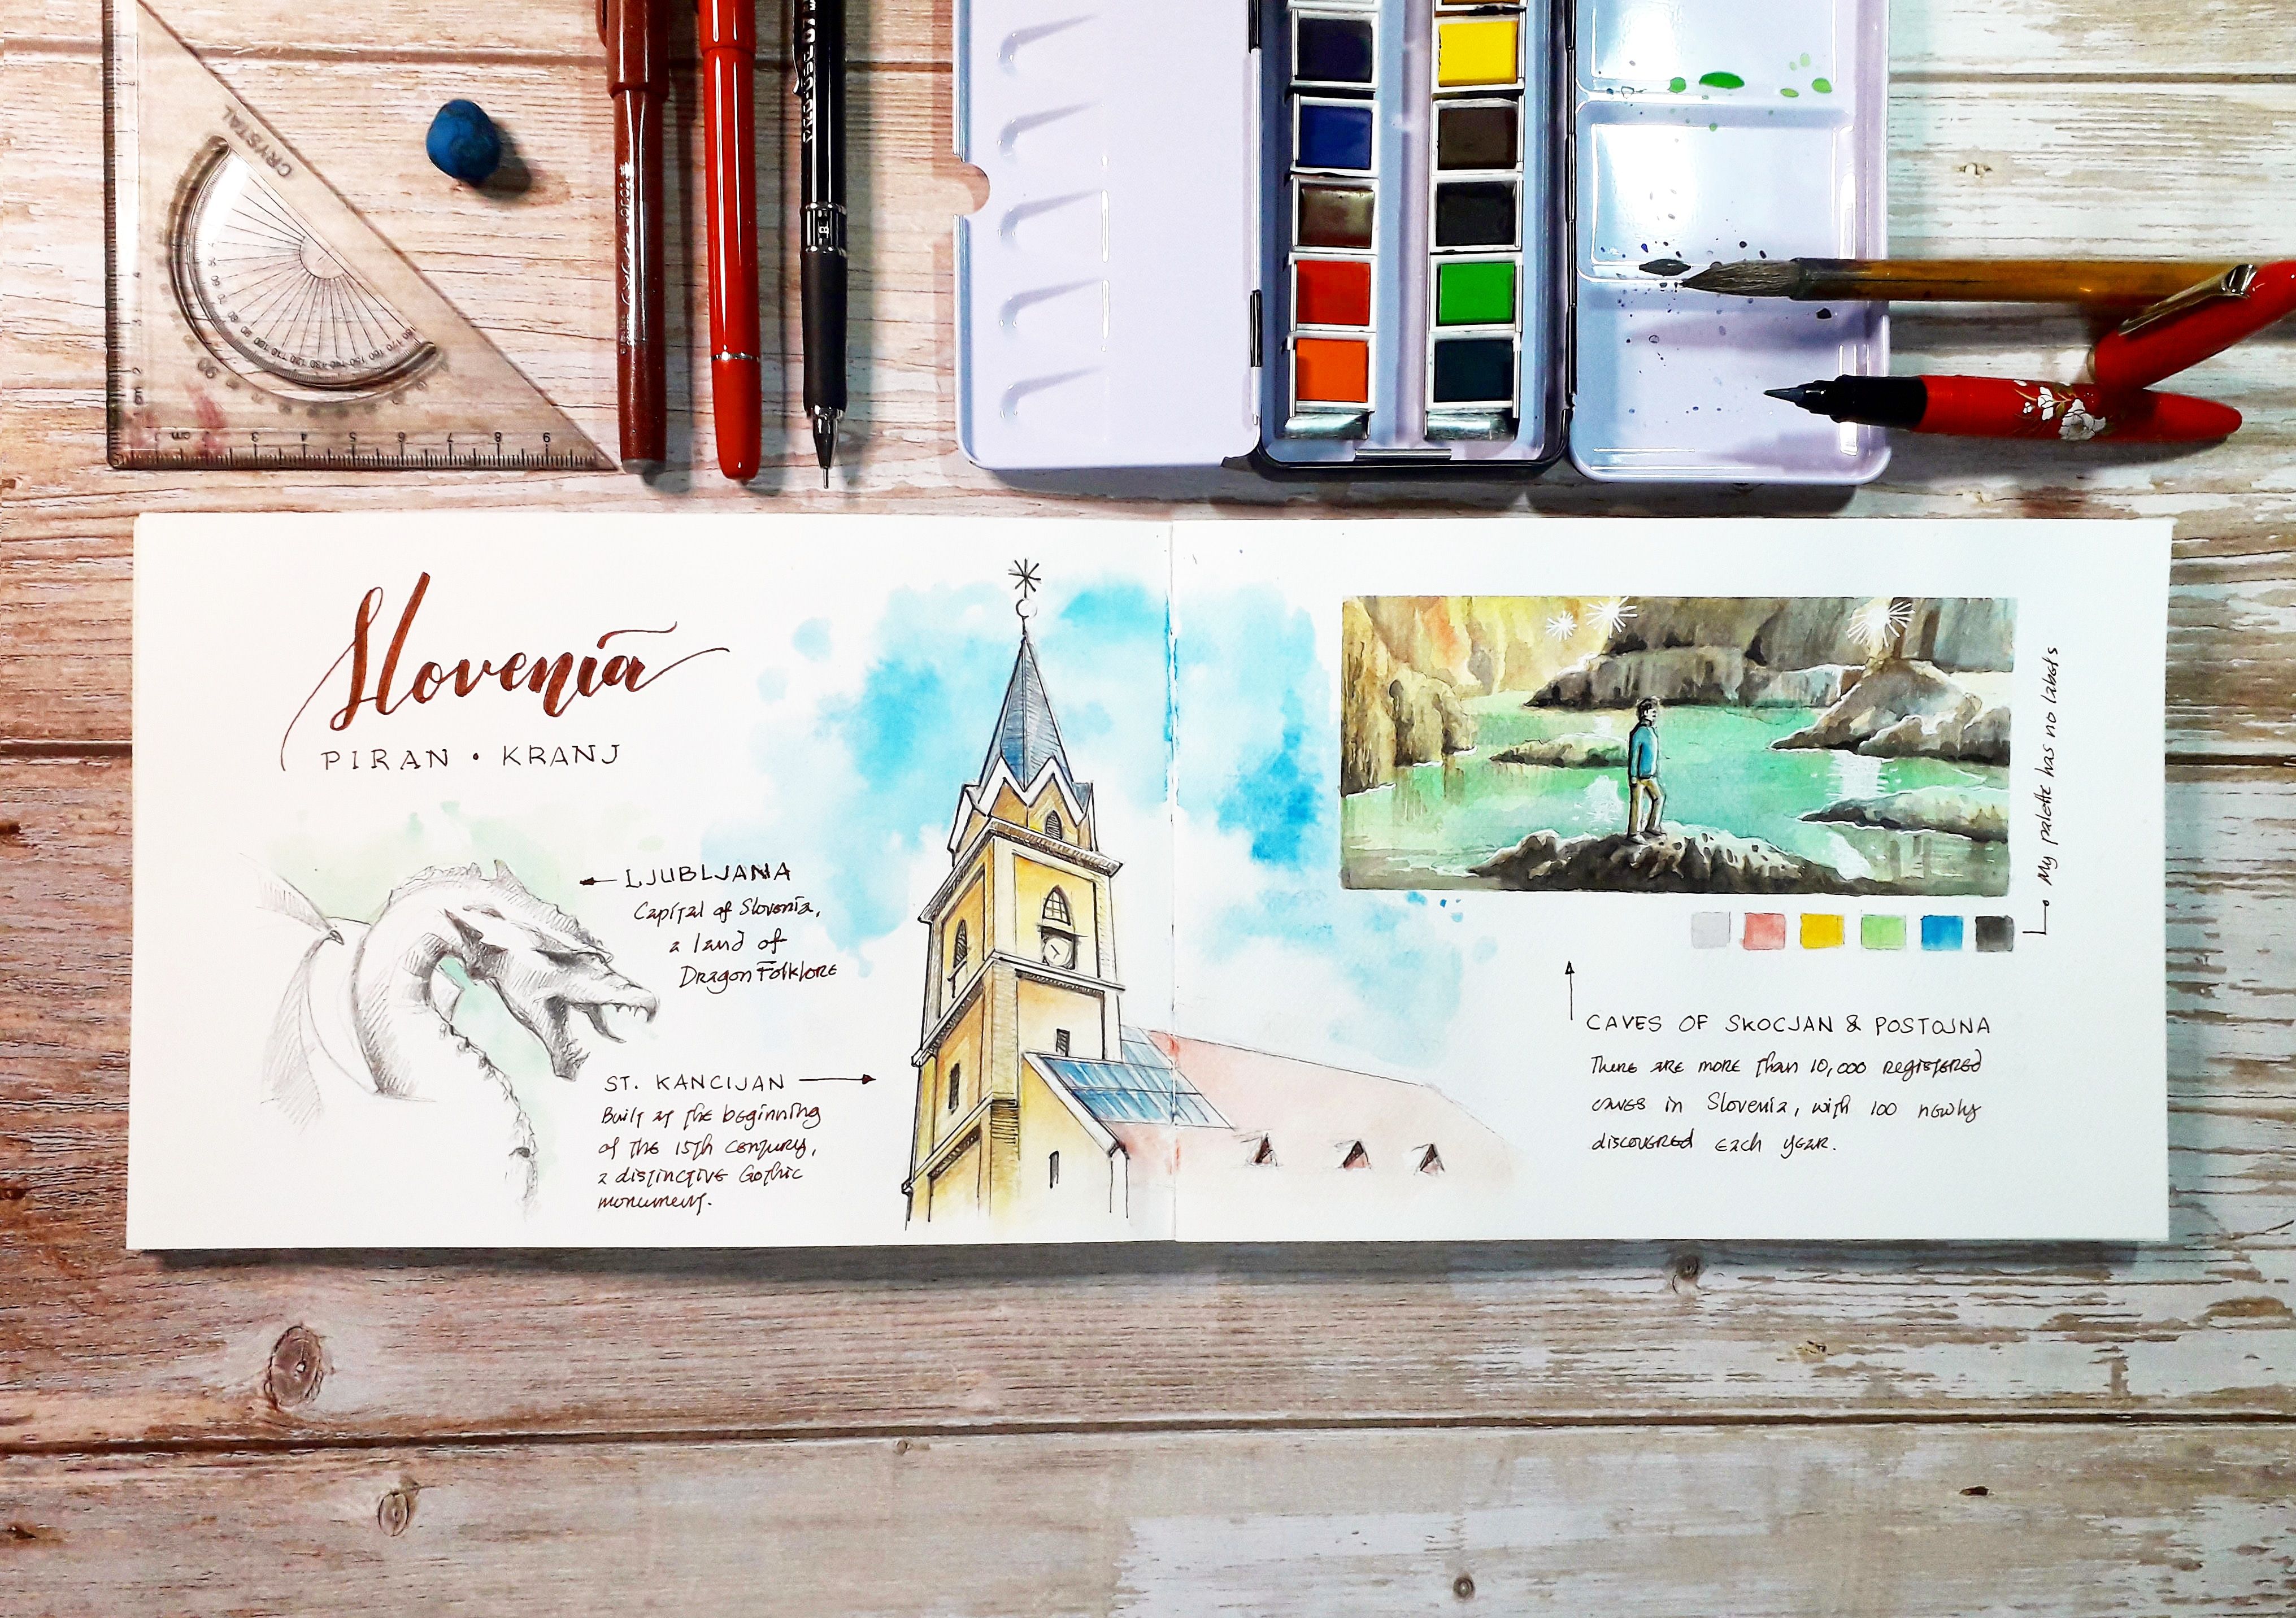 CRYSTAL
cm 1 2 3 4 5 6 7 8 9
Slovenia
PIRAN • KRANJ
LJUBLJANA
Capital of Slovenia,
a land of
Dragon Folklore
ST. KANCIJAN
Built at the beginning
of the 15th century,
a distinctive Gothic
monument.
My palette has no labels
CAVES OF SKOCJAN & POSTOJNA
There are more than 10,000 registered
caves in Slovenia, with 100 newly
discovered each year.